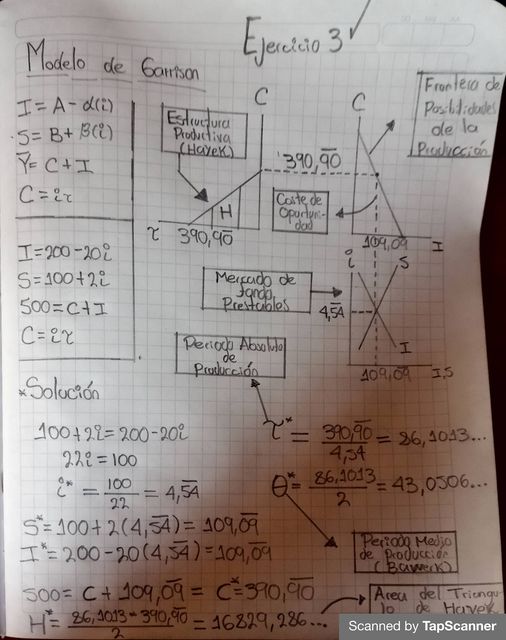 Ejercicio 3
Modelo de Garrison
I = A - α(i)
S = B + β(i)
Y̅ = C + I
C = iτ
I = 200 - 20i
S = 100 + 2i
500 = C + I
C = iτ
Estructura
Productiva
(HAYEK)
C
H
τ
390,9̅0̅
390,9̅0̅
C
Frontera de
Posibilidades
de la
Producción
Coste de
Oportuni-
dad
109,0̅9̅
I
Mercado de
fondos
Prestables
i
S
4,5̅4̅
I
109,0̅9̅
I,S
Periodo Absoluto
de
Producción
*Solución
100 + 2i = 200 - 20i
22i = 100
i* = 100/22 = 4,5̅4̅
S* = 100 + 2(4,5̅4̅) = 109,0̅9̅
I* = 200 - 20(4,5̅4̅) = 109,0̅9̅
500 = C + 109,0̅9̅ = C* = 390,9̅0̅
H* = 86,1013 * 390,9̅0̅ / 2 = 16829,286...
τ* = 390,9̅0̅ / 4,54 = 86,1013...
θ* = 86,1013 / 2 = 43,0506...
Periodo Medio
de Producción
(BAWERK)
Area del Triangu-
lo de Hayek
Scanned by TapScanner